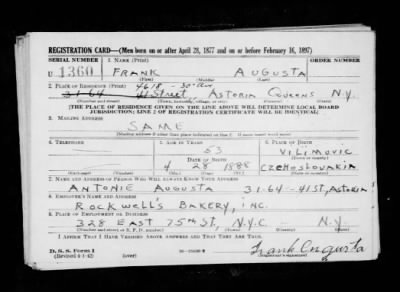 REGISTRATION CARD—(Men born on or after April 28, 1877 and on or before February 16, 1897)
SERIAL NUMBER 1. NAME (Print)
U 1360 FRANK AUGUSTA
(First) (Middle) (Last)
2. PLACE OF RESIDENCE (Print) 4618 30th
31-64 41 Street, ASTORIA QUEENS N.Y.
(Number and street) (Town, township, village, or city) (County) (State)
[THE PLACE OF RESIDENCE GIVEN ON THE LINE ABOVE WILL DETERMINE LOCAL BOARD
JURISDICTION; LINE 2 OF REGISTRATION CERTIFICATE WILL BE IDENTICAL]
3. MAILING ADDRESS
SAME
[Mailing address if other than place indicated on line 2. If same insert word same]
4. TELEPHONE 5. AGE IN YEARS 6. PLACE OF BIRTH
53 VILIMOVIC
DATE OF BIRTH (Town or county)
4 28 1888 CZEHOSLOVAKIA
(Exchange) (Number) (Mo.) (Day) (Yr.) (State or country)
7. NAME AND ADDRESS OF PERSON WHO WILL ALWAYS KNOW YOUR ADDRESS
ANTONIE AUGUSTA 31-64-41 ST, ASTORIA
8. EMPLOYER'S NAME AND ADDRESS
ROCKWELL'S BAKERY, INC.
9. PLACE OF EMPLOYMENT OR BUSINESS
328 EAST 75TH ST, N.Y.C. N.Y.
(Number and street or R. F. D. number) (Town) (County) (State)
I AFFIRM THAT I HAVE VERIFIED ABOVE ANSWERS AND THAT THEY ARE TRUE.
D. S. S. Form 1
(Revised 4-1-42) (over) Frank Augusta
(Registrant's signature)